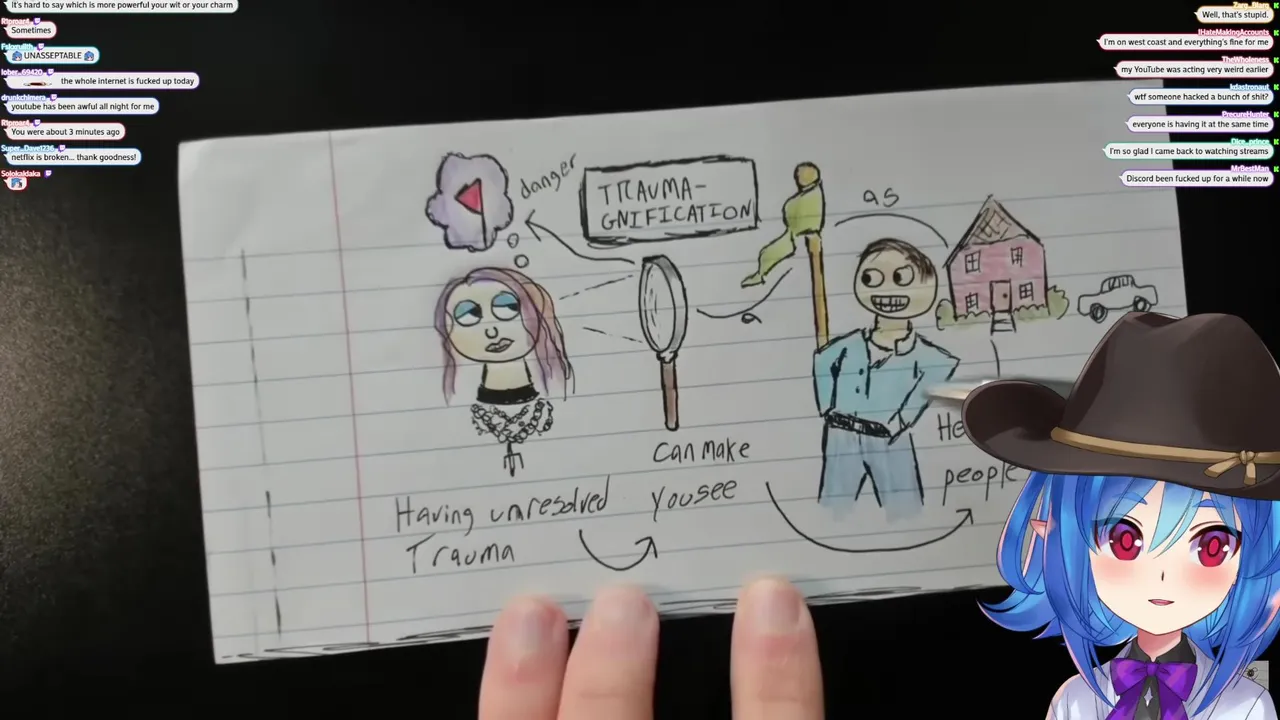 It's hard to say which is more powerful your wit or your charm
Sometimes
UNASSEPTABLE
the whole internet is fucked up today
drunkchimera
youtube has been awful all night for me
You were about 3 minutes ago
Super_Dave1236
netflix is broken... thank goodness!
Solokaldaka
Well, that's stupid.
IHateMakingAccounts
I'm on west coast and everything's fine for me
TheWholeness
my YouTube was acting very weird earlier
wtf someone hacked a bunch of shit?
PrecureHunter
everyone is having it at the same time
Dice_prince
I'm so glad I came back to watching streams
MrBestMan
Discord been fucked up for a while now
danger
TRAUMA-
GNIFICATION
as
a
Having unresolved
Trauma
can make
you see
He
people